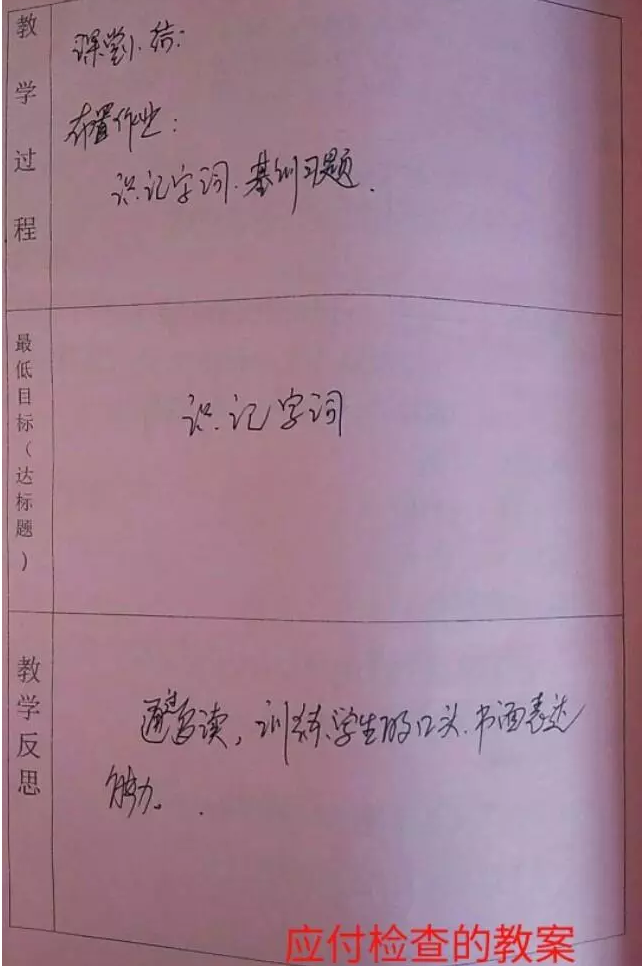 教学过程
课堂小结:
布置作业:
识记字词.基训习题.
最低目标(达标题)
识.记字词
教学反思
通过写读,训练学生的口头.书面表达
能力。
应付检查的教案